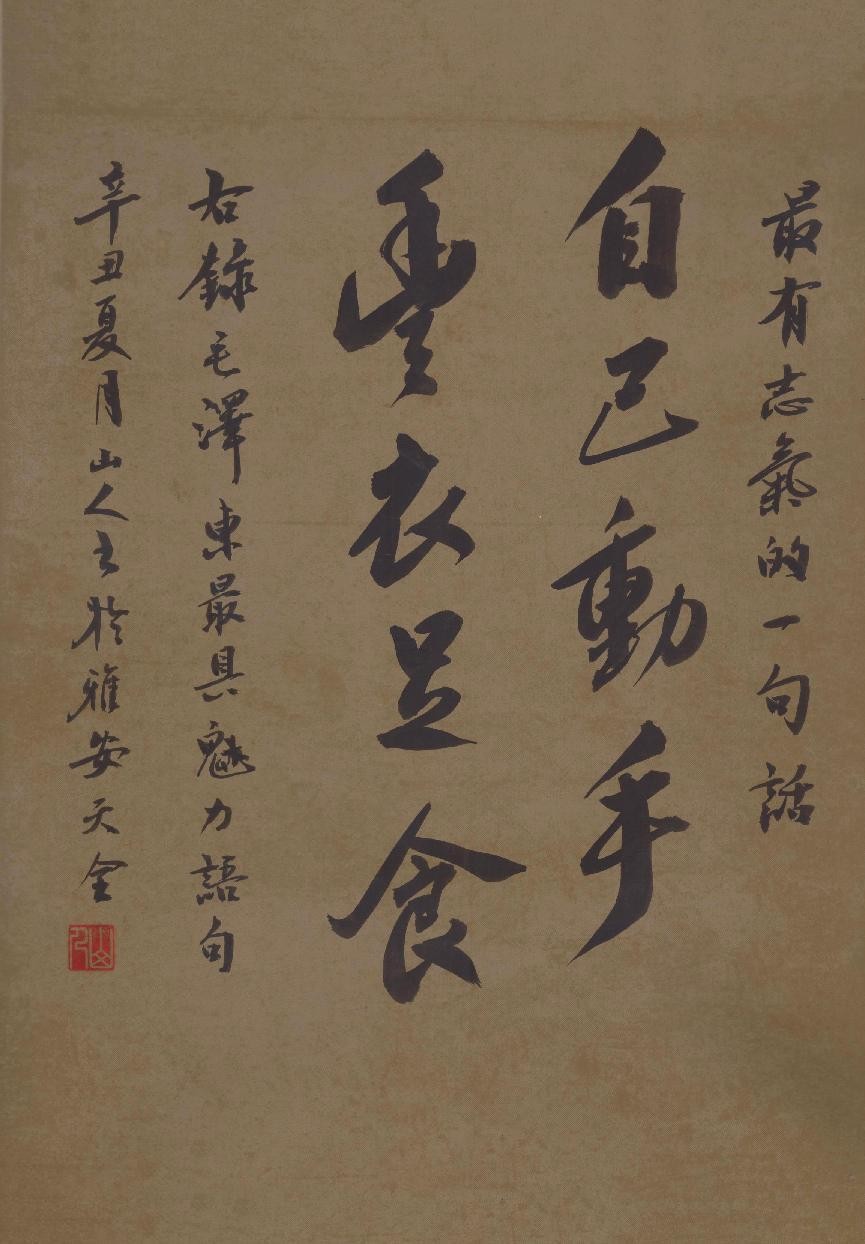 最有志氣的一句話
自己動手
豐衣足食
右錄毛澤東最具魅力語句
辛丑夏月山人書於雅安天全